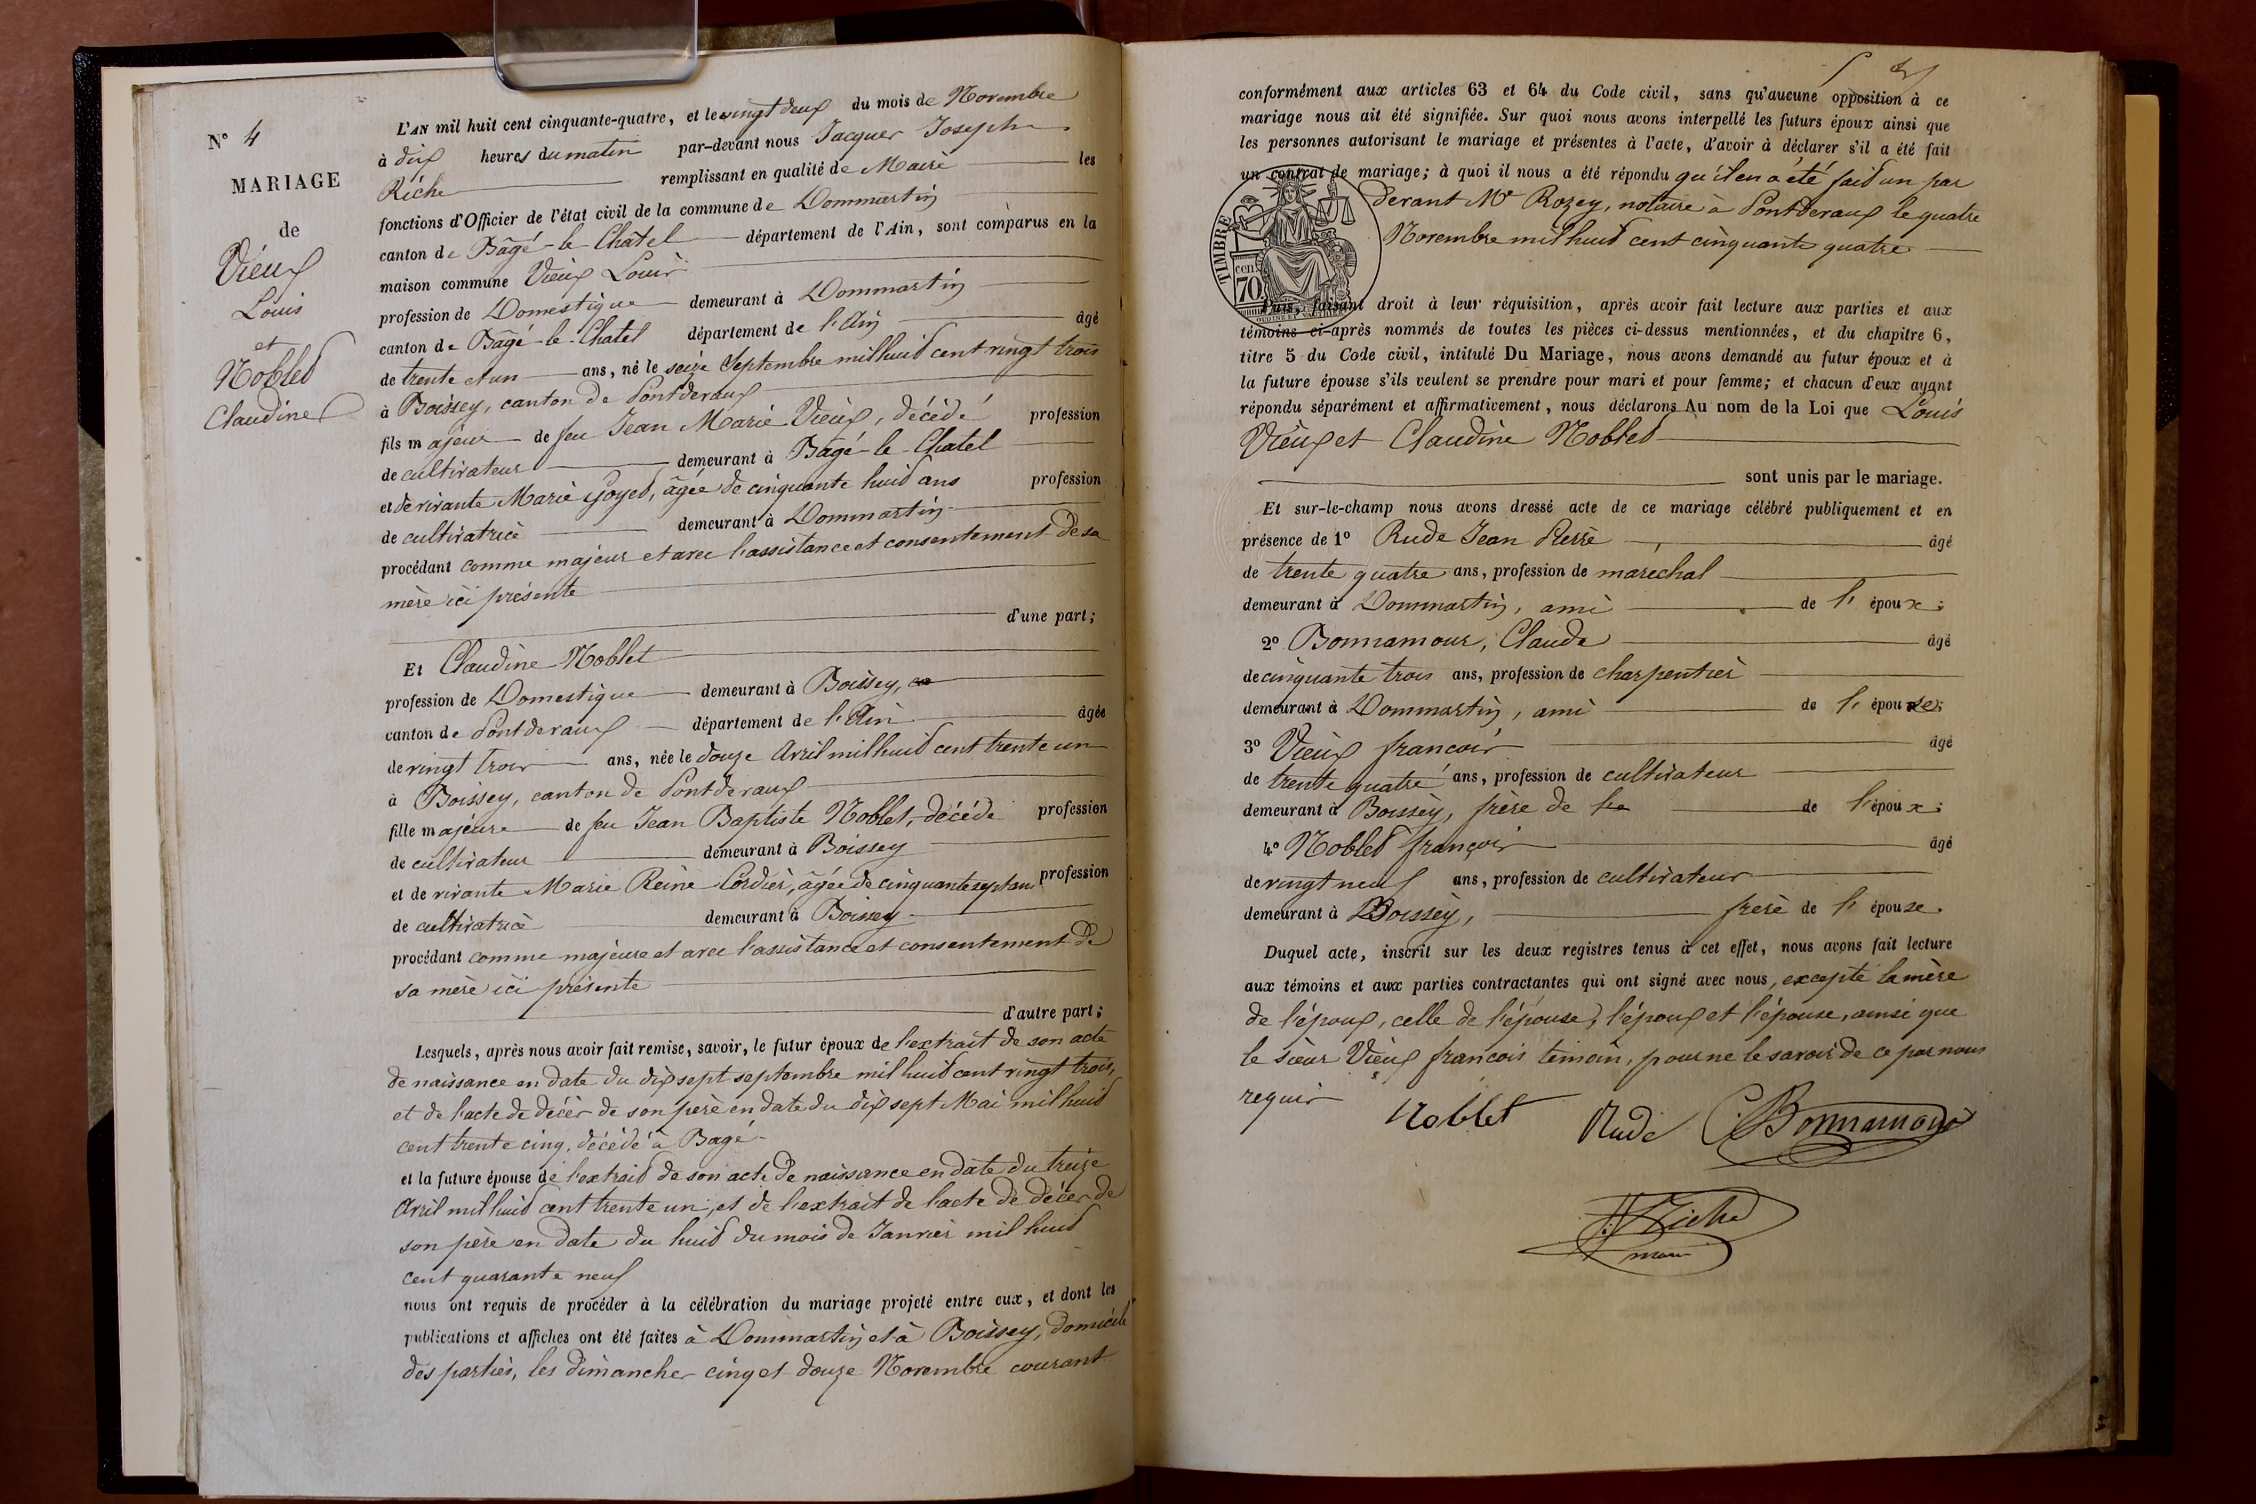 N° 4
MARIAGE
de
Vieux
Louis
et
Noblet
Claudine
L'AN mil huit cent cinquante-quatre, et le vingt deux du mois de Novembre
à dix heures du matin par-devant nous Jacques Joseph
Riche remplissant en qualité de Maire les
fonctions d'Officier de l'état civil de la commune de Dommartin
canton de Bâgé-le-Châtel département de l'Ain, sont comparus en la
maison commune Vieux Louis
profession de Domestique demeurant à Dommartin
canton de Bâgé-le-Chatel département de l'Ain âgé
de trente et un ans, né le seize Septembre mil huit cent vingt trois
à Boissey, canton de Pontdevaux
fils majeur de feu Jean Marie Vieux, décédé profession
de cultivateur demeurant à Bâgé-le-Chatel
et de vivante Marie Goyet, âgée de cinquante huit ans profession
de cultivatrice demeurant à Dommartin
procédant comme majeur et avec l'assistance et consentement de sa
mère ici présente
d'une part;
Et Claudine Noblet
profession de Domestique demeurant à Boissey, ca
canton de Pontdevaux département de l'Ain âgée
de vingt trois ans, née le douze Avril mil huit cent trente un
à Boissey, canton de Pontdevaux
fille majeure de feu Jean Baptiste Noblet, décédé profession
de cultivateur demeurant à Boissey
et de vivante Marie Reine Cordier, âgée de cinquante sept ans profession
de cultivatrice demeurant à Boissey
procédant comme majeure et avec l'assistance et consentement de
sa mère ici présente
d'autre part;
Lesquels, après nous avoir fait remise, savoir, le futur époux de l'extrait de son acte
de naissance en date du dix sept septembre mil huit cent vingt trois,
et de l'acte de décès de son père en date du dix sept Mai mil huit
cent trente cinq, décédé à Bagé
et la future épouse de l'extrait de son acte de naissance en date du treize
Avril mil huit cent trente un, et de l'extrait de l'acte de décès de
son père en date du huit du mois de Janvier mil huit
cent quarante neuf
nous ont requis de procéder à la célébration du mariage projeté entre eux, et dont les
publications et affiches ont été faites à Dommartin et à Boissey, domicile
des parties, les dimanches cinq et douze Novembre courant
conformément aux articles 63 et 64 du Code civil, sans qu'aucune opposition à ce
mariage nous ait été signifiée. Sur quoi nous avons interpellé les futurs époux ainsi que
les personnes autorisant le mariage et présentes à l'acte, d'avoir à déclarer s'il a été fait
un contrat de mariage; à quoi il nous a été répondu qu'il en a été fait un par
devant Me Rozey, notaire à Pontdevaux le quatre
Novembre mil huit cent cinquante quatre
TIMBRE
cen.
70
Puis, faisant droit à leur réquisition, après avoir fait lecture aux parties et aux
témoins ci-après nommés de toutes les pièces ci-dessus mentionnées, et du chapitre 6,
titre 5 du Code civil, intitulé Du Mariage, nous avons demandé au futur époux et à
la future épouse s'ils veulent se prendre pour mari et pour femme; et chacun d'eux ayant
répondu séparément et affirmativement, nous déclarons Au nom de la Loi que Louis
Vieux et Claudine Noblet
sont unis par le mariage.
Et sur-le-champ nous avons dressé acte de ce mariage célébré publiquement et en
présence de 1° Rude Jean Pierre âgé
de trente quatre ans, profession de maréchal
demeurant à Dommartin, ami de l'époux;
2° Bonnamour, Claude âgé
de cinquante trois ans, profession de charpentier
demeurant à Dommartin, ami de l'épouse;
3° Vieux francois âgé
de trente quatre ans, profession de cultivateur
demeurant à Boissey, frère de de l'époux;
4° Noblet françois âgé
de vingt neuf ans, profession de cultivateur
demeurant à Boissey, frere de l'épouse.
Duquel acte, inscrit sur les deux registres tenus à cet effet, nous avons fait lecture
aux témoins et aux parties contractantes qui ont signé avec nous, excepté la mère
de l'époux, celle de l'épouse, l'époux et l'épouse, ainsi que
le sieur Vieux francois témoin, pour ne le savoir de ce par nous
requis
Noblet Rude C. Bonnamour
J. Riche
maire